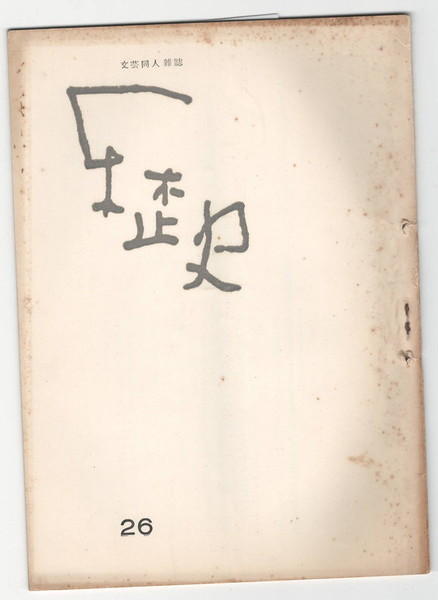 文芸同人雑誌
歴史
26